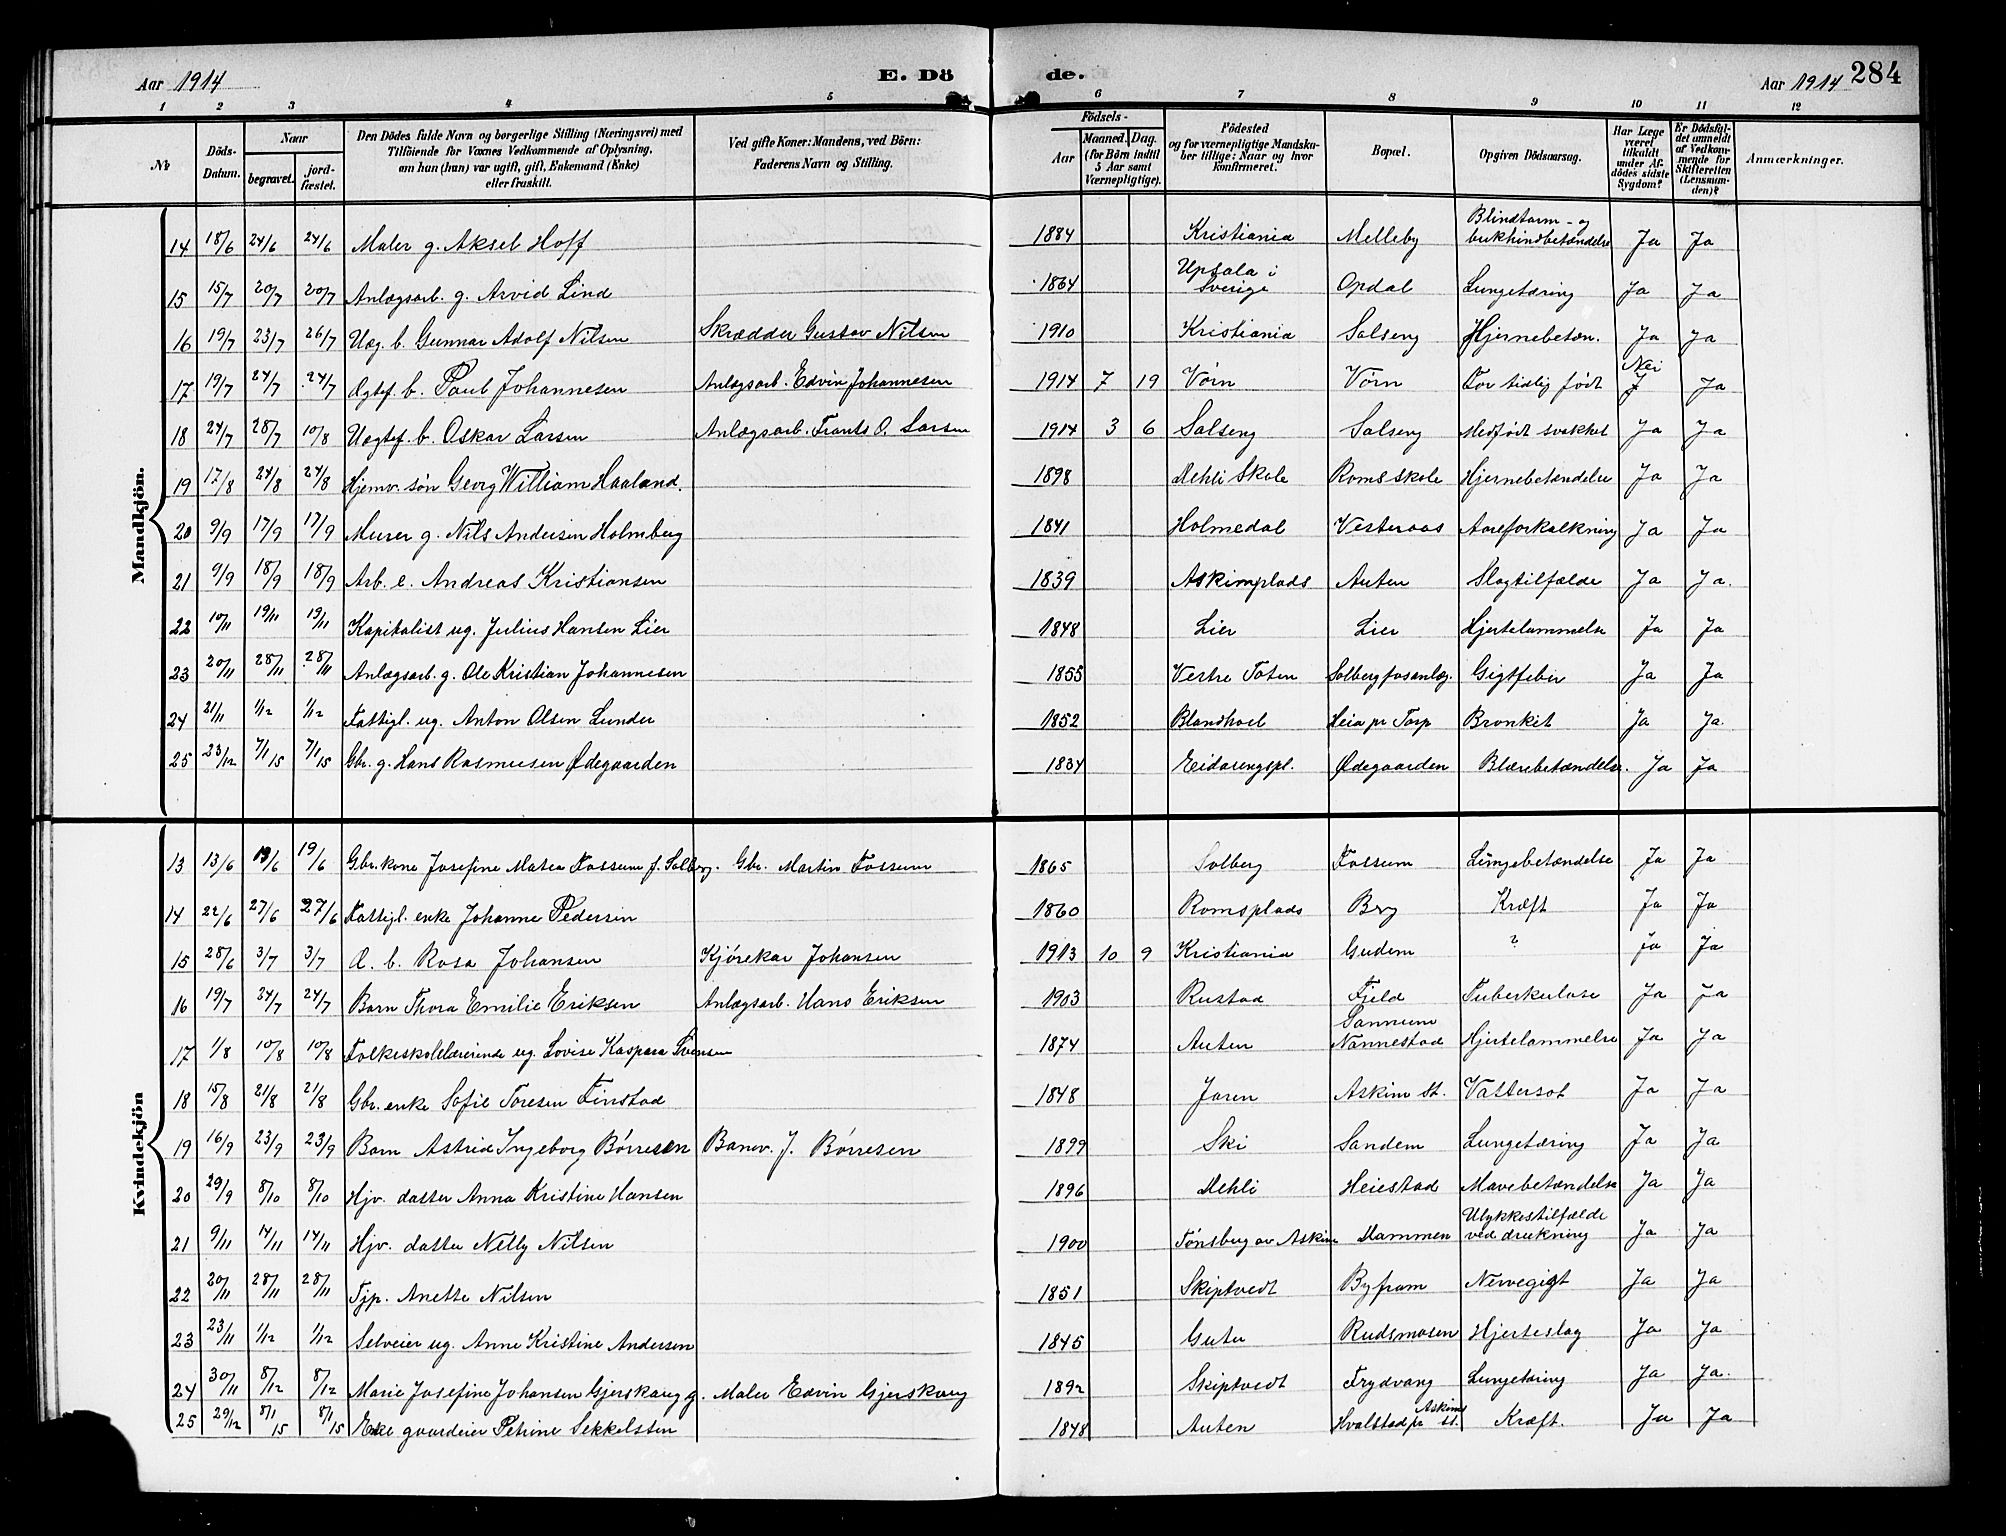 Aar 1914 E. Dö de. Aar 1914 284
1 2 3 4 5 6 7 8 9 10 11 12
No Döds-Datum. Naar begravet. jordfæstet. Den Dödes fulde Navn og borgerlige Stilling (Næringsvei) med Tilföiende for Voxnes Vedkommende af Oplysning, om han (hun) var ugift, gift, Enkemand (Enke) eller fraskilt. Ved gifte Koner: Mandens, ved Börn: Faderens Navn og Stilling. Födsels- Aar Maaned. Dag. (for Börn indtil 5 Aar samt Værnepligtige). Födested og for værnepligtige Mandskaber tillige: Naar og hvor Konfirmeret. Bopæl. Opgiven Dödsaarsag. Har Læge været tilkaldt under Afdödes sidste Sygdom? Er Dödsfaldet anmeldt af Vedkommende for Skifteretten (Lensmanden)? Anmærkninger.
Mandkjön.
14 18/6 24/6 24/6 Maler g. Aksel Hoff 1884 Kristiania Melleby Blindtarm- og bukhindbetændelse Ja Ja
15 15/7 20/7 20/7 Anlægsarb. g. Arvid Lind 1864 Upsala i Sverige Opdal Lungetæring Ja Ja
16 19/7 23/7 26/7 Uæg. b. Gunnar Adolf Nilsen Skrædder Gustav Nilsen 1910 Kristiania Solseng Hjernebetæn. Ja Ja
17 19/7 24/7 24/7 Ægtef. b. Paul Johannesen Anlægsarb. Edvin Johannesen 1914 7 19 Vörn Vörn For tidlig født Nei Ja
18 24/7 28/7 10/8 Uægtef. b. Oskar Larsen Anlægsarb. Frants O. Larsen 1914 3 6 Solseng Solseng Medfødt svakhet Ja Ja
19 17/8 24/8 24/8 Hjemv. søn Georg William Haaland. 1898 Mehli Skole Romsskole Hjernebetændelse Ja Ja
20 9/9 17/9 17/9 Murer g. Nils Andersen Holmberg 1841 Holmedal Vesteraas Aareforkalkning Ja Ja
21 9/9 18/9 18/9 Arb. e. Andreas Kristiansen 1839 Askimplads Auten Slagtilfælde Ja Ja.
22 10/11 19/11 19/11 Kapitalist ug. Julius Hansen Lier 1848 Lier Lier Hjertelammelse Ja Ja
23 20/11 28/11 28/11 Anlægsarb. g. Ole Kristian Johannesen 1855 Vestre Toten Solbergfosanlæg. Gigtfeber Ja Ja
24 21/11 1/12 1/12 Fattigl. ug. Anton Olsen Lunder 1852 Heia pr Torp Bronkit Ja Ja.
25 23/12 7/1 15 7/1 15 Gbr. g. Hans Rasmusen Ødegaarden 1834 Eidarengspl. Ødegaarden Blærebetændelse. Ja Ja
Kvindekjön
13 13/6 19/6 19/6 Gbr. kone Josefine Matea Fossum f. Solberg. Gbr. Martin Fossum 1865 Solberg Fossum Lungebetændelse Ja Ja
14 22/6 27/6 27/6 Fattigl. enke Johanne Pedersen 1860 Romsplads Berg Kræft Ja Ja
15 28/6 3/7 3/7 Æ. b. Rosa Johansen Kjørekar Johansen 1913 10 9 Kristiania Gudem ? Ja Ja
16 19/7 24/7 24/7 Barn Thora Emilie Eriksen Anlægsarb. Hans Eriksen 1903 Rustad Fjeld Tuberkulose Ja Ja
17 1/8 10/8 10/8 Folkeskolelærerinde ug. Lovise Kaspara Svensen 1874 Auten Sannum Nannestad Hjertelammelse Ja Ja
18 15/8 21/8 21/8 Gbr. enke Sofie Toresen Finstad 1848 Jaren Askim st. Vattersot Ja Ja
19 16/9 23/9 23/9 Barn Astrid Ingeborg Børresen Banev. J. Børresen 1899 Ski Sandem Lungetæring Ja Ja
20 29/9 8/10 8/10 Hjv. datter Anna Kristine Hansen 1896 Mehli Heiestad Mavebetændelse Ja Ja
21 9/11 14/11 14/11 Hjv. datter Nelly Nilsen 1900 Tønsberg av Askim Hammen Ulykkestilfælde ved drukning Ja Ja
22 20/11 28/11 28/11 Tjp. Anette Nilsen 1851 Skiptvedt Byfram Nervegigt Ja Ja
23 23/11 1/12 1/12 Selveier ug. Anne Kristine Andersen 1845 Guter Rudsmosen Hjerteslag Ja Ja
24 30/11 8/12 8/12 Marie Josefine Johansen Gjerskaug g. Maler Edvin Gjerskaug 1892 Skiptvedt Frydvang Lungetæring Ja Ja.
25 29/12 8/1 15 8/1 15 Enke gaardeier Petrine Sekkelsten 1848 Auten Hvalstad pr Askim st. Kræft. Ja Ja